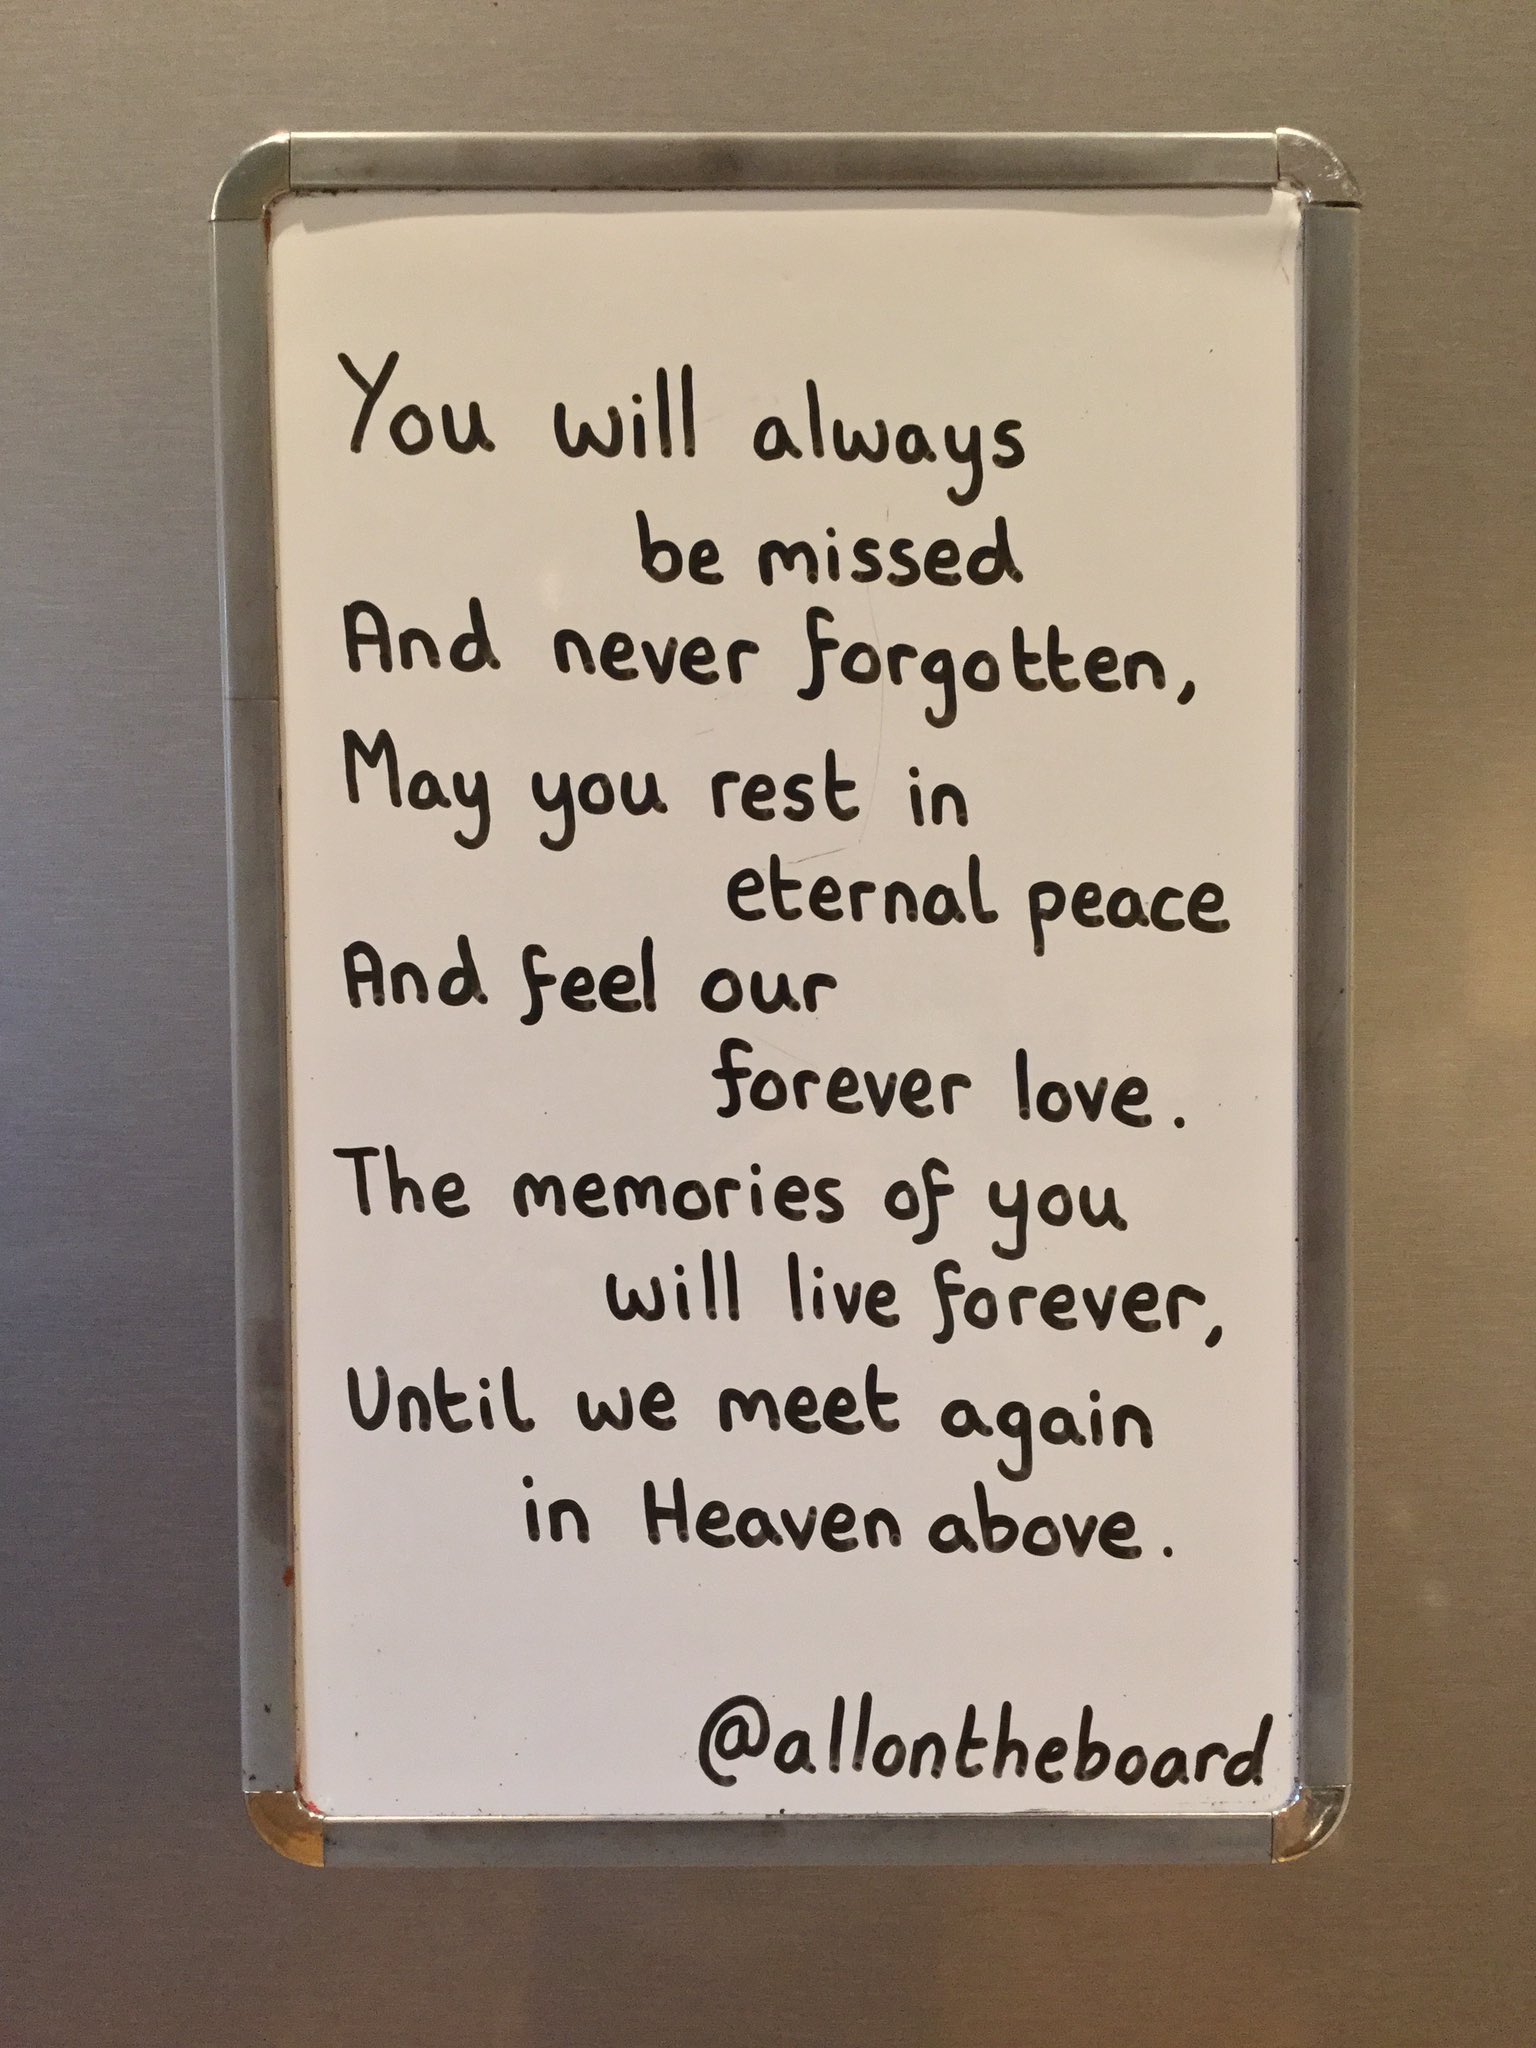 You will always
be missed
And never forgotten,
May you rest in
eternal peace
And feel our
forever love.
The memories of you
will live forever,
Until we meet again
in Heaven above.
@allontheboard